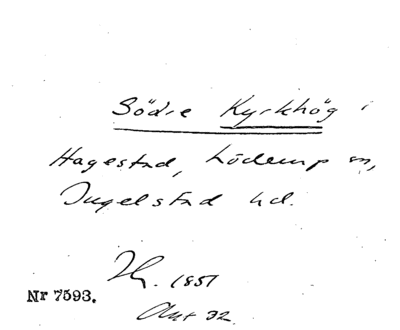 Södre Kyrkhög i
Hagestad, Löderup sn,
Ingelstad hd.
1851
Nr 7593.
32